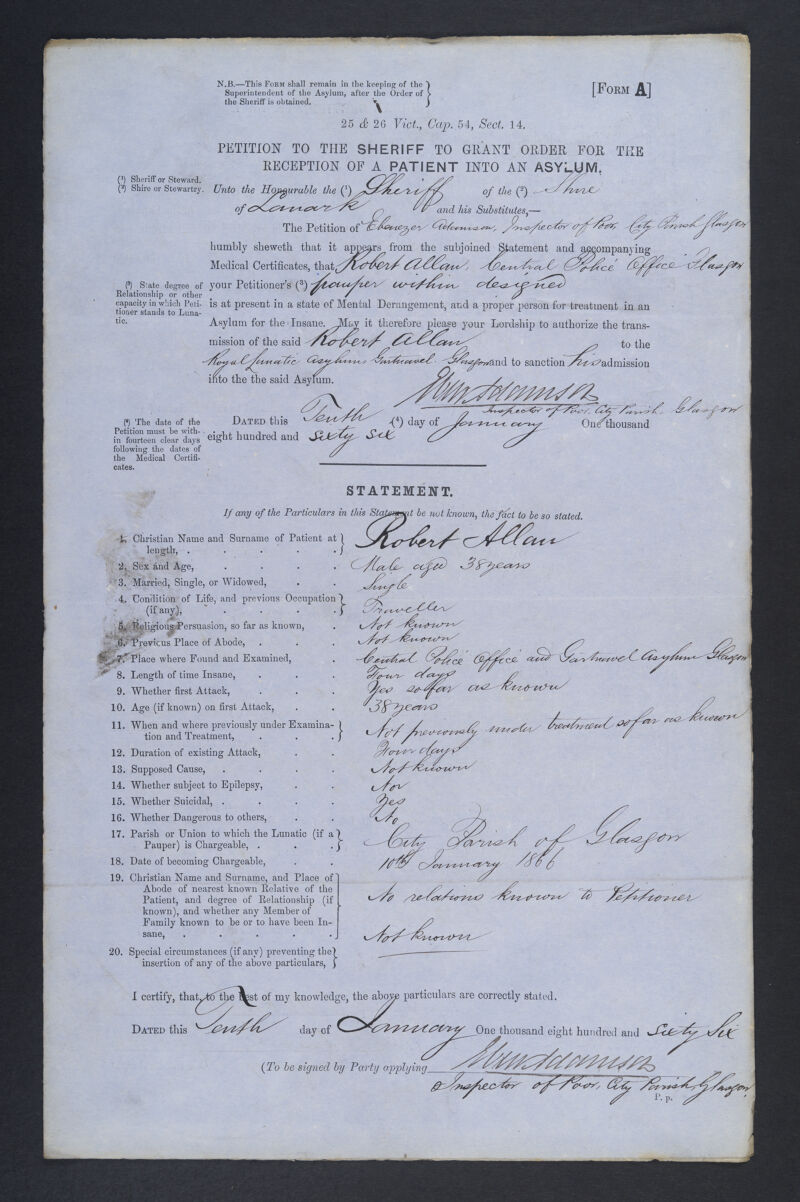 N.B.—This Form shall remain in the keeping of the
Superintendent of the Asylum, after the Order of
the Sheriff is obtained.
[Form A]
25 & 26 Vict., Cap. 54, Sect. 14.
PETITION TO THE SHERIFF TO GRANT ORDER FOR THE
RECEPTION OF A PATIENT INTO AN ASYLUM.
(¹) Sheriff or Steward.
(²) Shire or Stewartry.
Unto the Honourable the (¹) Sheriff of the (²) Shire
of Lanark and his Substitutes,—
The Petition of Ebenezer Adamson, Inspector of Poor, City Parish Glasgow
humbly sheweth that it appears from the subjoined Statement and accompanying
Medical Certificates, that Robert Allan, Central Police Office Glasgow
(³) State degree of
Relationship or other
capacity in which Peti-
tioner stands to Luna-
tic.
your Petitioner's (³) pauper within designed
is at present in a state of Mental Derangement, and a proper person for treatment in an
Asylum for the Insane. May it therefore please your Lordship to authorize the trans-
mission of the said Robert Allan to the
Royal Lunatic Asylum Gartnavel Glasgow and to sanction his admission
into the the said Asylum.
Eben Adamson
Inspector of Poor, City Parish, Glasgow
(⁴) The date of the
Petition must be with-
in fourteen clear days
following the dates of
the Medical Certifi-
cates.
Dated this Tenth (⁴) day of January One thousand
eight hundred and Sixty Six
STATEMENT.
If any of the Particulars in this Statement be not known, the fact to be so stated.
1. Christian Name and Surname of Patient at
length, . . . . . Robert Allan
2. Sex and Age, . . . . Male aged 38 years
3. Married, Single, or Widowed, . . Single
4. Condition of Life, and previous Occupation
(if any), . . . . . Traveller
5. Religious Persuasion, so far as known, . Not known
6. Previous Place of Abode, . . . Not known
7. Place where Found and Examined, . . Central Police Office and Gartnavel Asylum Glasgow
8. Length of time Insane, . . . Four days
9. Whether first Attack, . . . Yes so far as known
10. Age (if known) on first Attack, . . 38 years
11. When and where previously under Examina-
tion and Treatment, . . . . Not previously under treatment so far as known
12. Duration of existing Attack, . . Four days
13. Supposed Cause, . . . . Not known
14. Whether subject to Epilepsy, . . No
15. Whether Suicidal, . . . . Yes
16. Whether Dangerous to others, . . No
17. Parish or Union to which the Lunatic (if a
Pauper) is Chargeable, . . . City Parish of Glasgow
18. Date of becoming Chargeable, . . 10th January 1866
19. Christian Name and Surname, and Place of
Abode of nearest known Relative of the
Patient, and degree of Relationship (if
known), and whether any Member of
Family known to be or to have been In-
sane, . . . . .
No relations known to Petitioner
Not known
20. Special circumstances (if any) preventing the
insertion of any of the above particulars,
I certify, that, to the best of my knowledge, the above particulars are correctly stated.
Dated this Tenth day of January One thousand eight hundred and Sixty Six
(To be signed by Party applying Eben Adamson
Inspector of Poor, City Parish, Glasgow.
P. p.